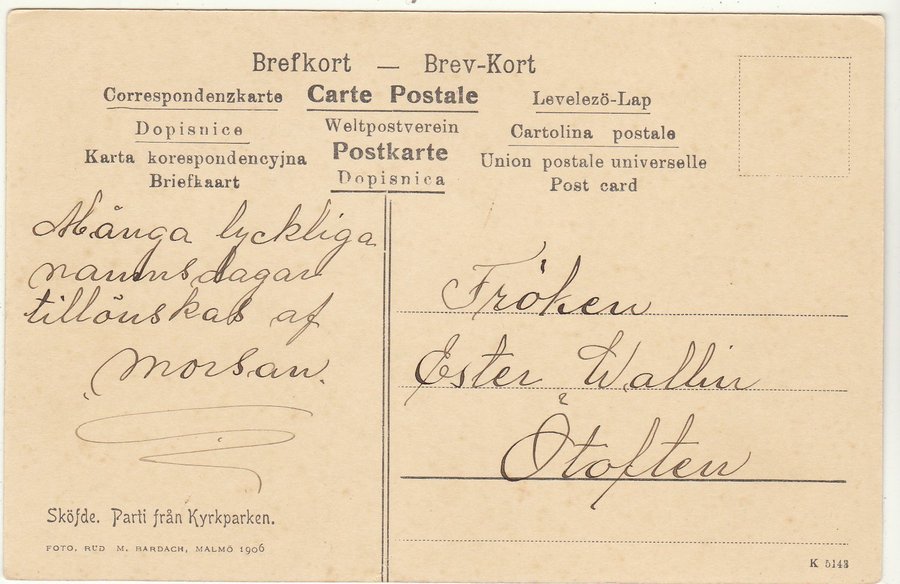 Brefkort — Brev-Kort
Correspondenzkarte Carte Postale Levelezö-Lap
Dopisnice Weltpostverein Cartolina postale
Karta korespondencyjna Postkarte Union postale universelle
Briefkaart Dopisnica Post card
Många lyckliga
namnsdagar
tillönskas af
Morsan.
Fröken
Ester Wallin
Ötoften
Sköfde. Parti från Kyrkparken.
FOTO. RUD M. BARDACH, MALMÖ 1906
K 5143